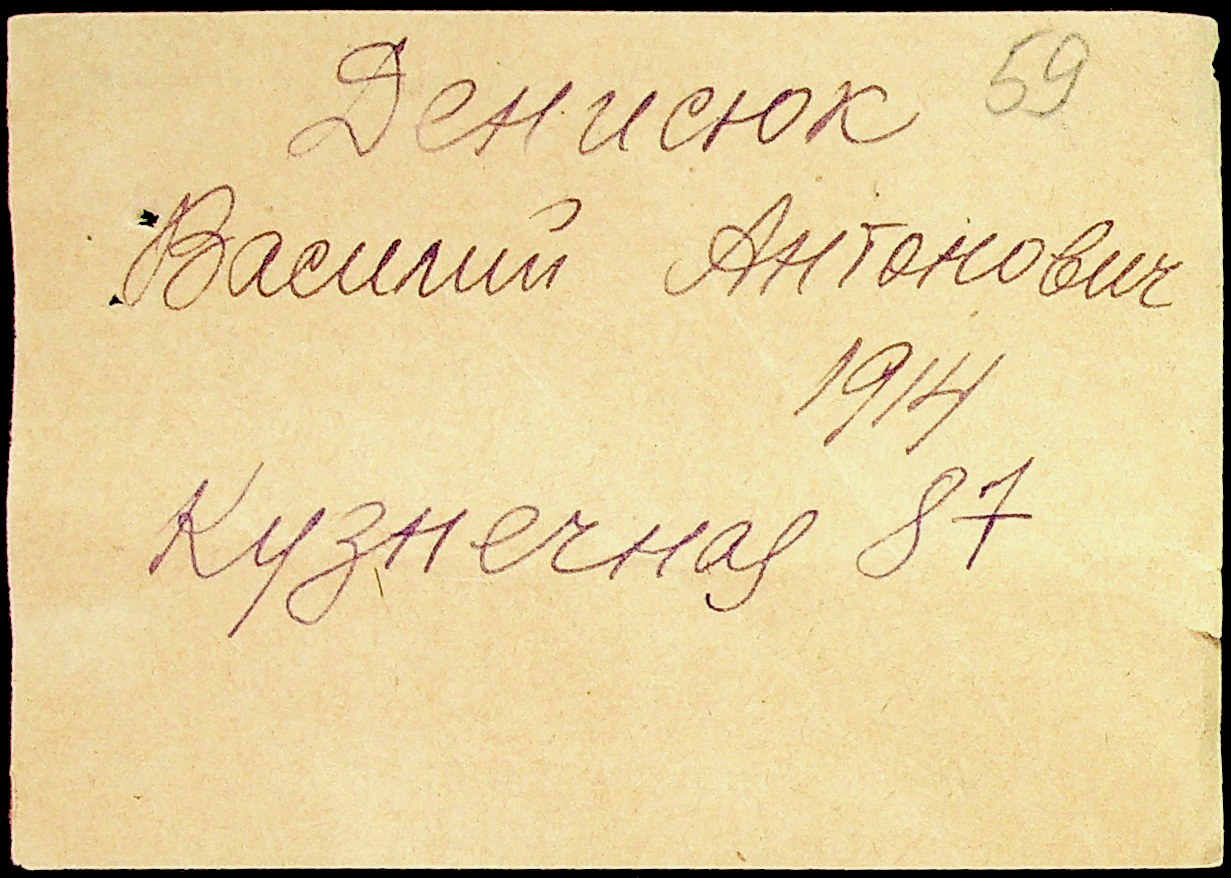 Денисюк 59
Василий Антонович
1914
Кузнечная 87